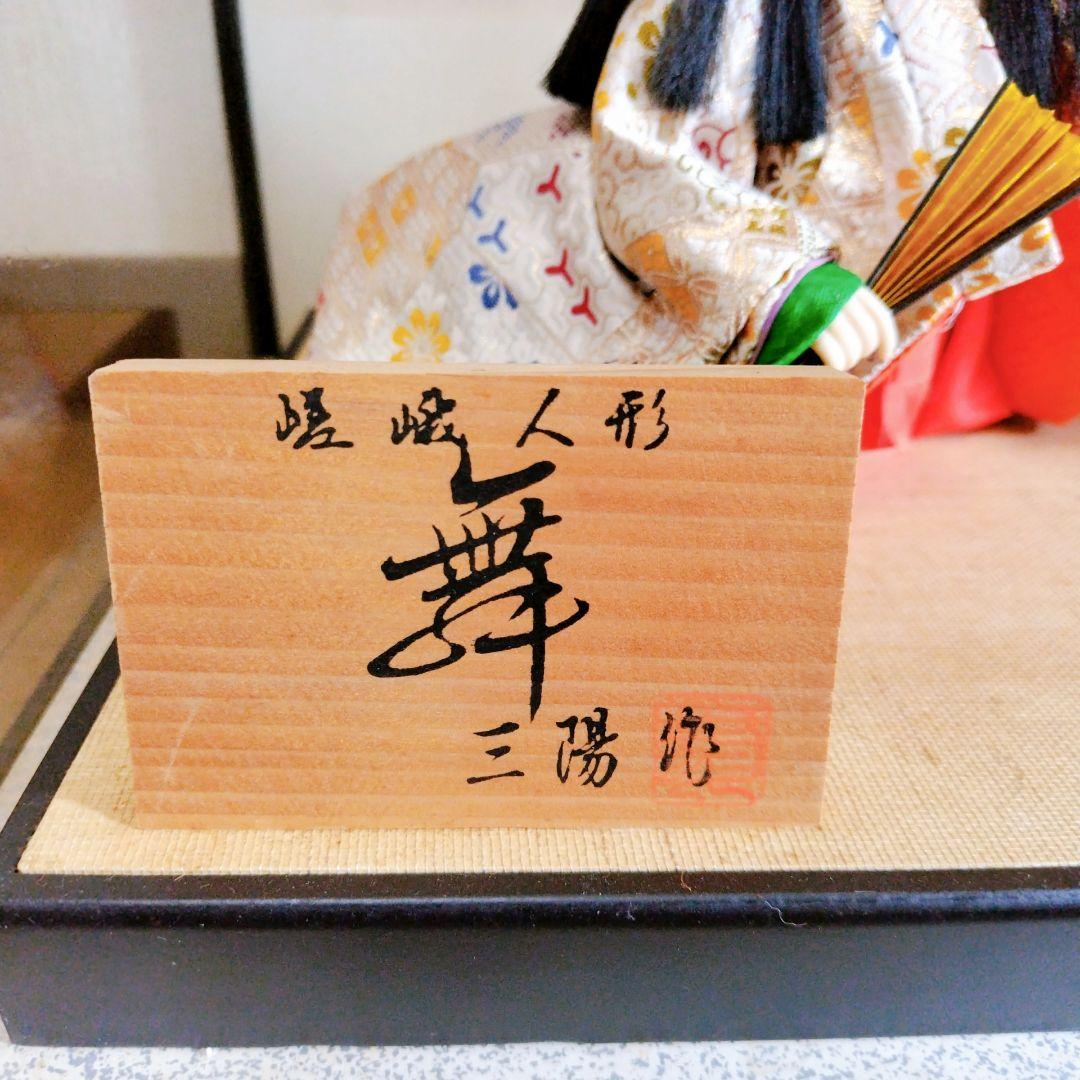 嵯峨人形
舞
三陽作